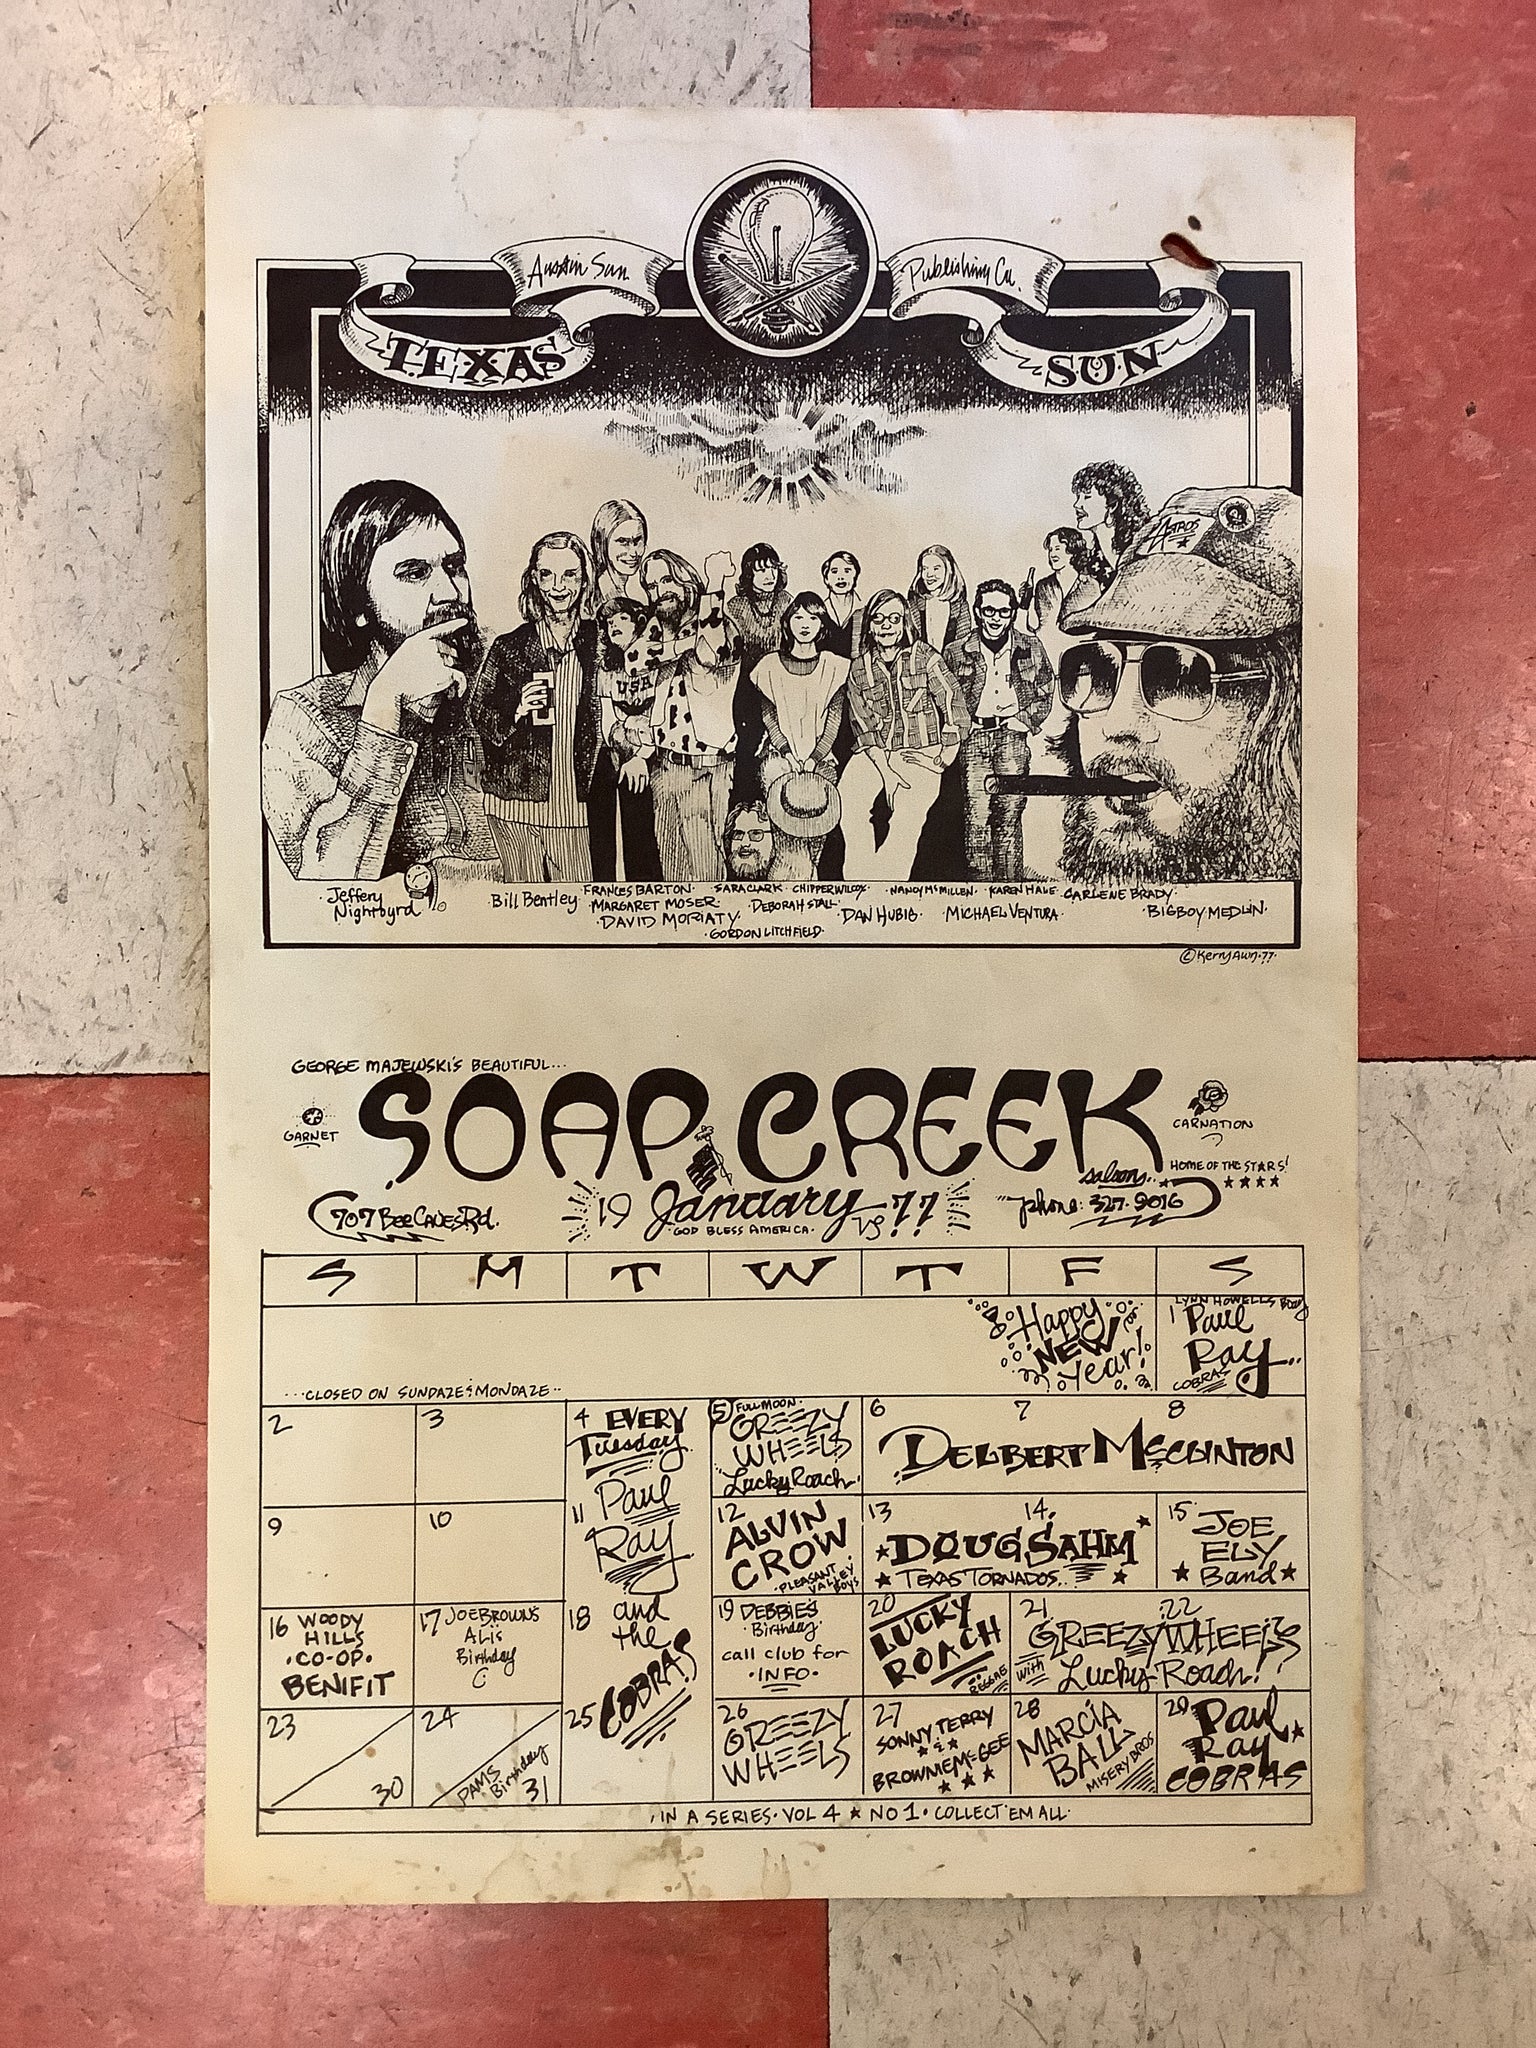 Austin Sun
Publishing Co.
TEXAS
SUN
ASTROS
USA
Jeffery Nightbyrd
Bill Bentley
FRANCES BARTON
MARGARET MOSER
DAVID MORIATY
SARA CLARK
DEBORAH STALL
GORDON LITCHFIELD
CHIPPER WILCOX
DAN HUBIG
NANCY McMILLEN
MICHAEL VENTURA
KAREN HALE
CARLENE BRADY
BIGBOY MEDLIN
© Kerry Awn 77
GEORGE MAJEWSKI'S BEAUTIFUL...
SOAP CREEK
GARNET
CARNATION
saloon...
HOME OF THE STARS!
707 Bee Caves Rd.
19 January 77
GOD BLESS AMERICA
phone: 327-9016
S M T W T F S
Happy
NEW
Year!
LYNN HOWELLS BDAY
1 Paul
Ray...
COBRAS
...CLOSED ON SUNDAZE & MONDAZE...
2
3
4 EVERY
Tuesday
Paul
Ray
and
the
COBRAS
5 FULL MOON
GREEZY
WHEELS
Lucky Roach
6 7 8
DELBERT McCLINTON
9
10
11
12
ALVIN
CROW
PLEASANT
VALLEY
BOYS
13 14
DOUG SAHM
TEXAS TORNADOS..
15
JOE
ELY
Band
16 WOODY
HILLS
CO-OP
BENIFIT
17 JOE BROWN'S
ALIS
Birthday
18
19 DEBBIE'S
Birthday
call club for
INFO
20
LUCKY
ROACH
REGGAE
21 22
GREEZY WHEELS
with Lucky Roach!
23
30
24
PAM'S
Birthday
31
25
26
GREEZY
WHEELS
27
SONNY TERRY
&
BROWNIE McGEE
28
MARCIA
BALL
MISERY BROS
29 Paul
Ray
COBRAS
IN A SERIES · VOL 4 ★ NO 1 · COLLECT 'EM ALL